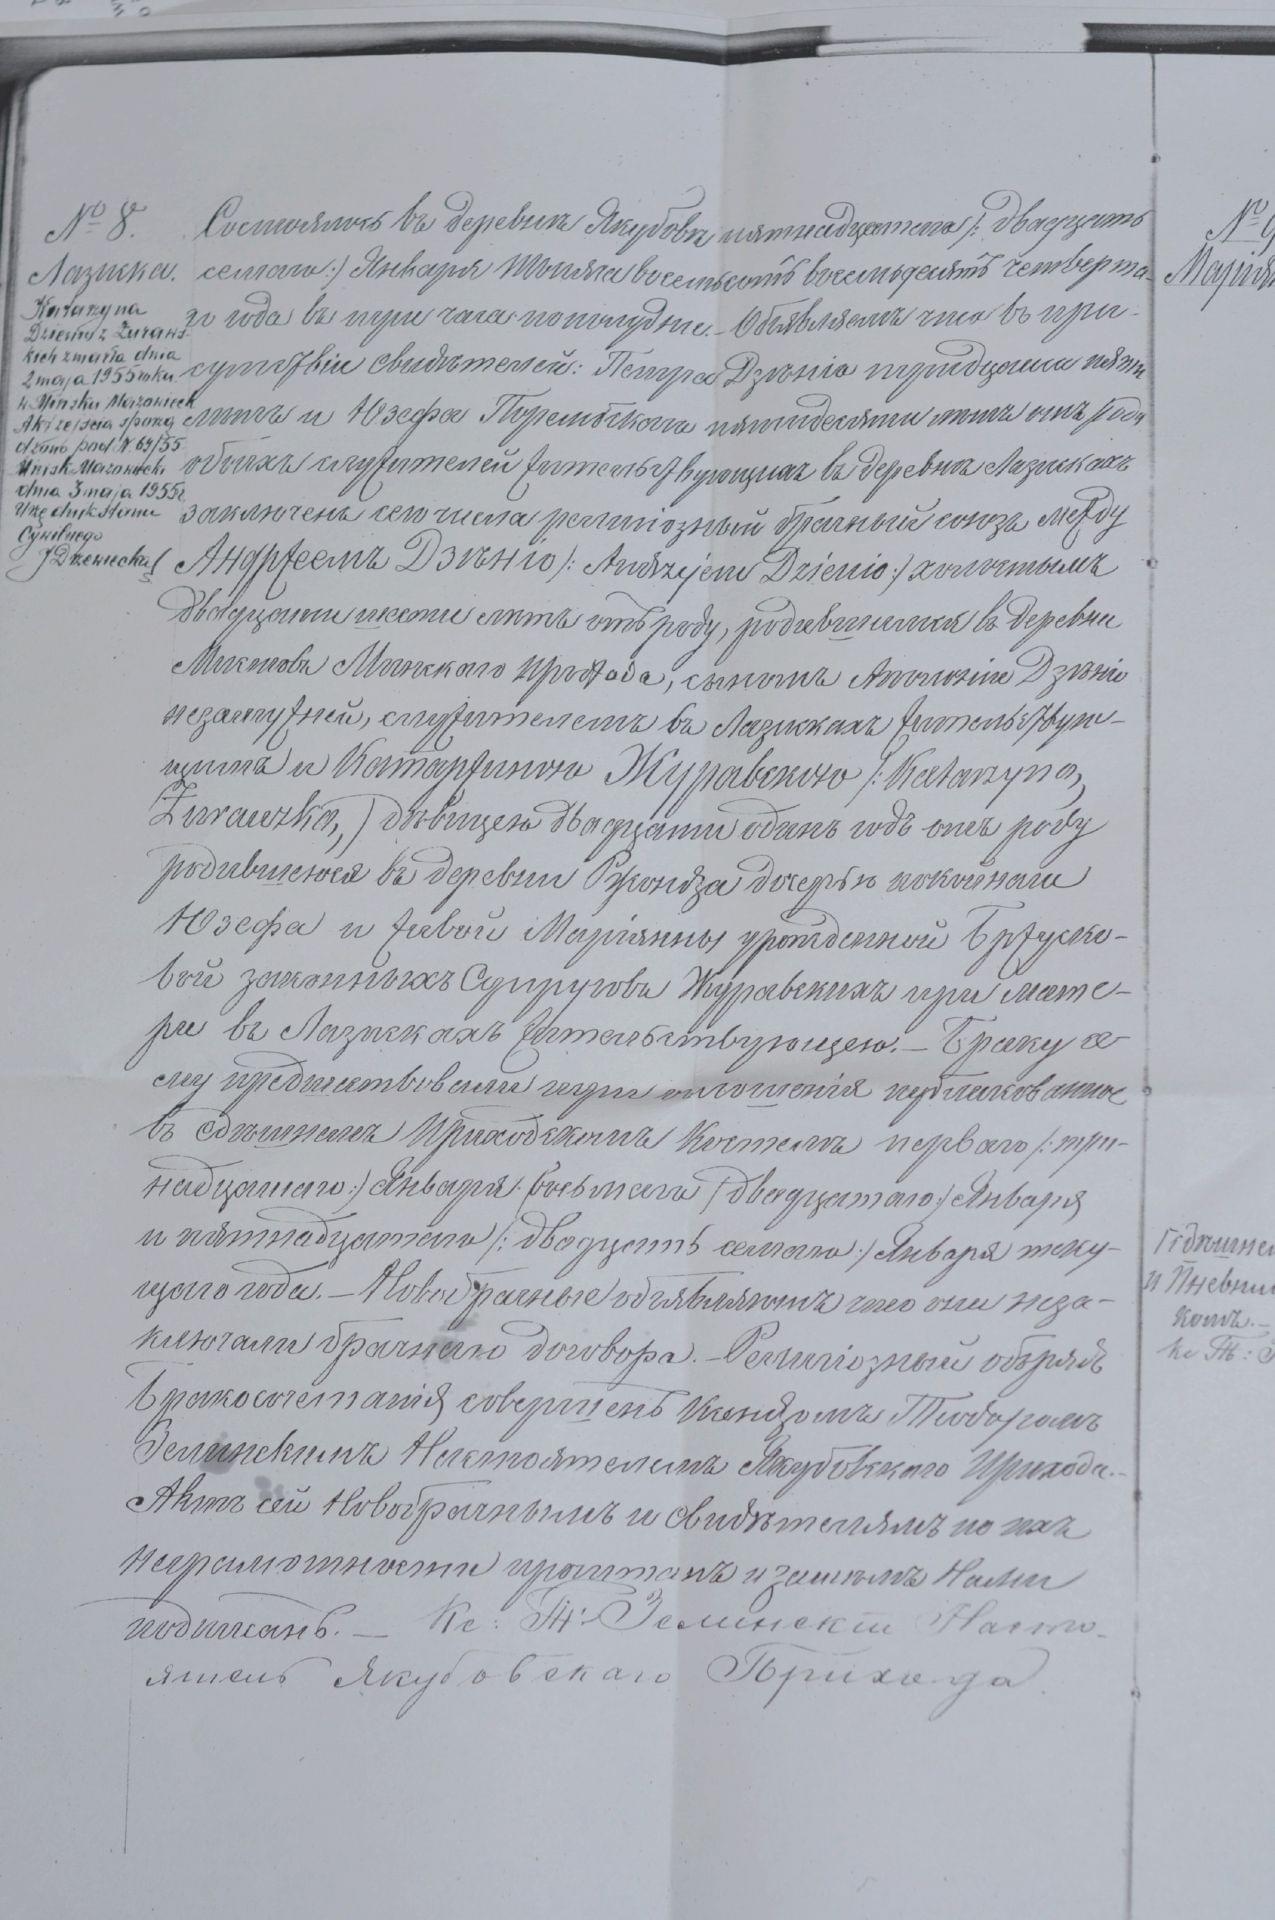 № 8.
Лазиска.
Katarzyna
Dzienio z Żuraws-
kich zmarła dnia
2 maja 1955 roku
w Mińsku Mazowieck
Akt zejścia sporzą
dzono pod Nr 64/55
Mińsk Mazowiecki
dnia 3 maja 1955 r
Urzędnik Stanu
Cywilnego
Состоялось въ деревнѣ Якубовѣ пятнадцатаго /: двадцать
седьмаго :/ Января тысяча восемьсотъ восемьдесятъ четверта-
го года въ три часа пополудни. – Объявляемъ что въ при-
сутствіи свидѣтелей: Петра Дзѣніо тридцати пяти
лѣтъ и Юзефа пятидесяти лѣтъ отъ роду
обоихъ служителей жительствующихъ въ деревнѣ Лазискахъ
заключенъ сего числа религіозный брачный союзъ между
Андржеемъ Дзѣніо /: Andrzejem Dzienio :/ холостымъ
двадцати шести лѣтъ отъ роду, родившимся въ деревни
Минскаго уѣзда, сыномъ Аполоніи Дзѣніо
незамужней, служителемъ въ Лазискахъ жительствую-
щимъ и Катаржиною Журавскою /: Katarzyną
Żurawską, / дѣвицею двадцати одинъ годъ отъ роду
родившеюся въ деревни Ржонза дочерью покойнаго
Юзефа и живой Маріянны урожденной Бржуско-
вой законныхъ Супруговъ Журавскихъ при мате-
ри въ Лазискахъ жительствующею. – Браку се-
му предшествовали три оглошенія публикованные
въ здѣшнемъ Приходскомъ Костелѣ перваго /: три-
надцатаго :/ Января, восьмаго / двадцатаго :/ Января
и пятнадцатаго /: двадцать седьмаго :/ Января теку-
щаго года. – Новобрачные объявляютъ что они неза-
ключали брачнаго договора. – Религіозный обрядъ
Бракосочетанія совершенъ Ксендзомъ Теодоромъ
Зелинскимъ Настоятелемъ Якубовскаго Прихода. –
Актъ сей Новобрачнымъ и свидѣтелямъ по ихъ
неграмотности прочитанъ и затѣмъ Нами
подписанъ. – Кс: Т: Зелинскій Насто-
ятель Якубовскаго Прихода.